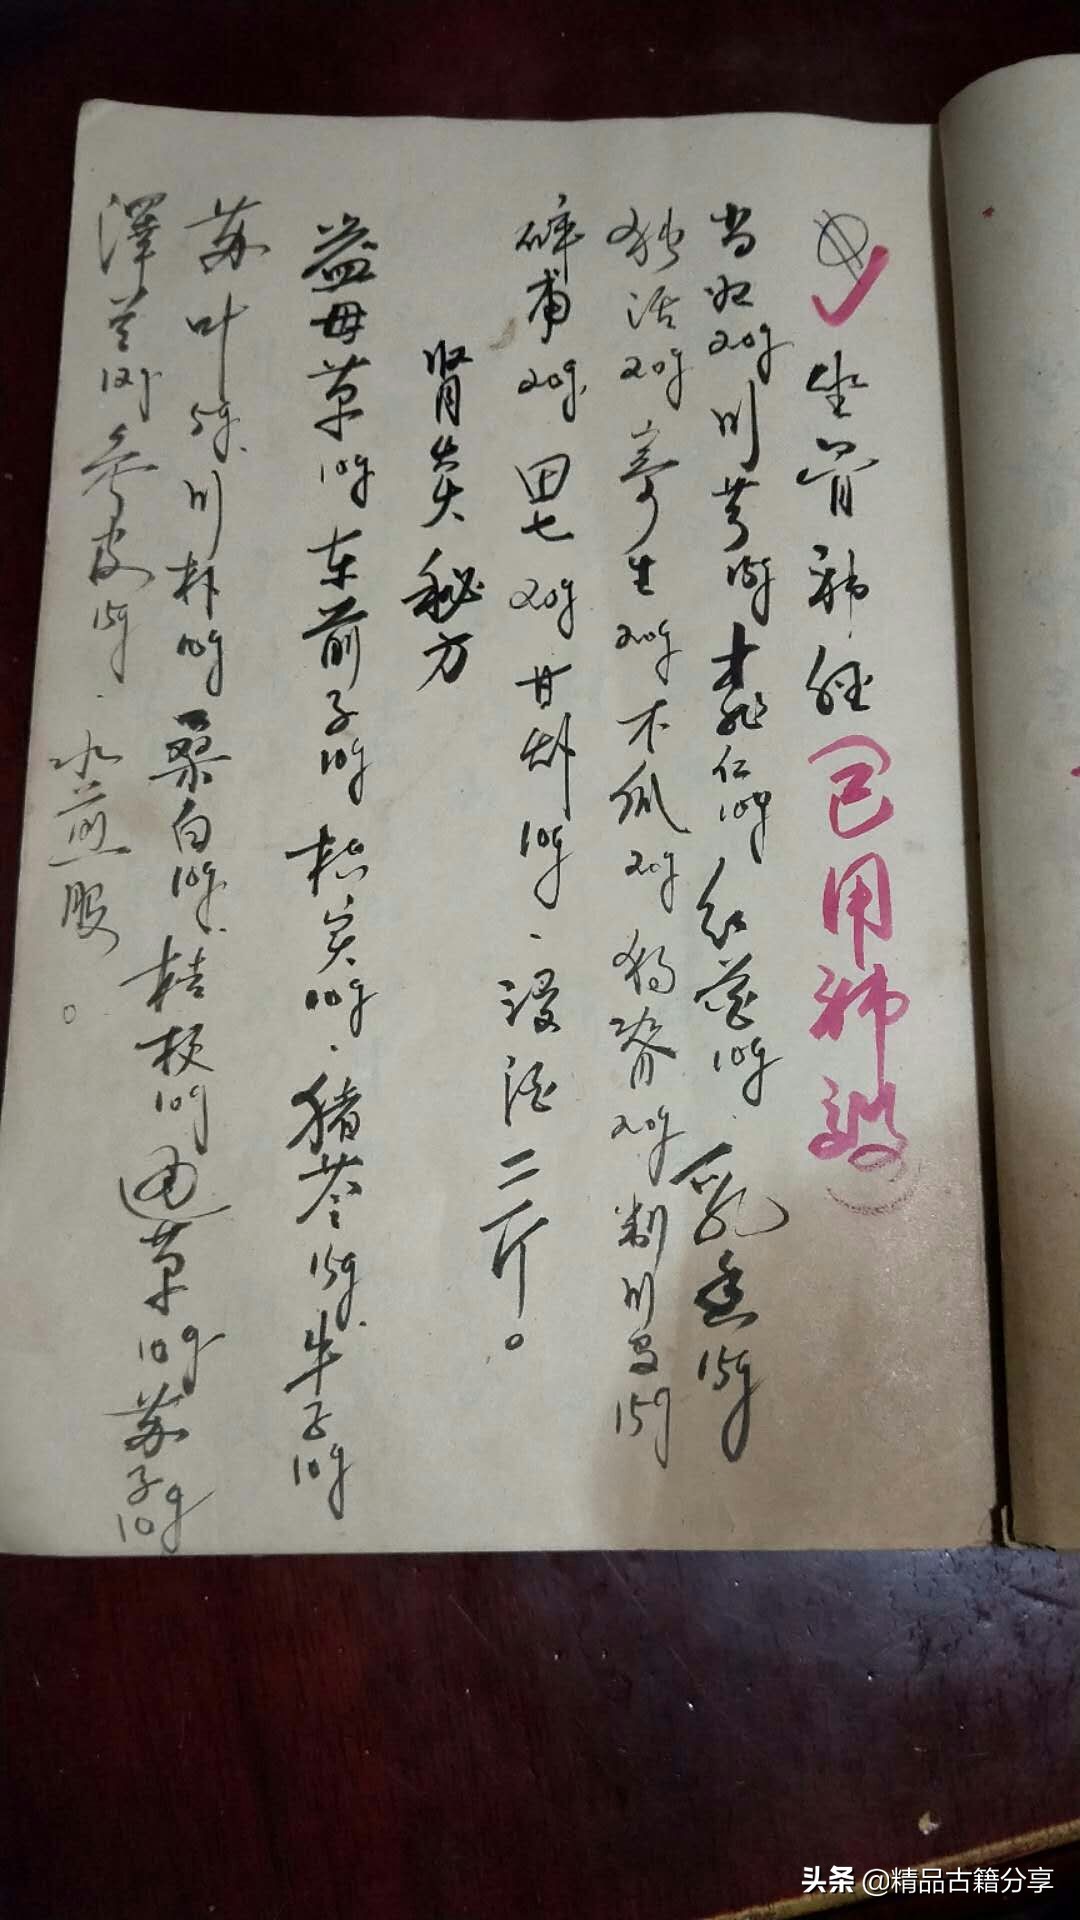 坐骨神经（已用神效）
当归20g 川芎15g 桃仁10g 红花10g 乳香15g
独活20g 寄生20g 木瓜20g 狗脊20g 制川乌15g
20g 田七20g 甘草10g、浸酒二斤。
肾炎秘方
益母草10g 车前子10g 枳实10g、猪苓15g 牛子10g
苏叶5g 川朴10g 桑白10g 桔梗10g 通草10g 苏子10g
澤兰12g 苓皮15g、水煎服。
头条 @精品古籍分享